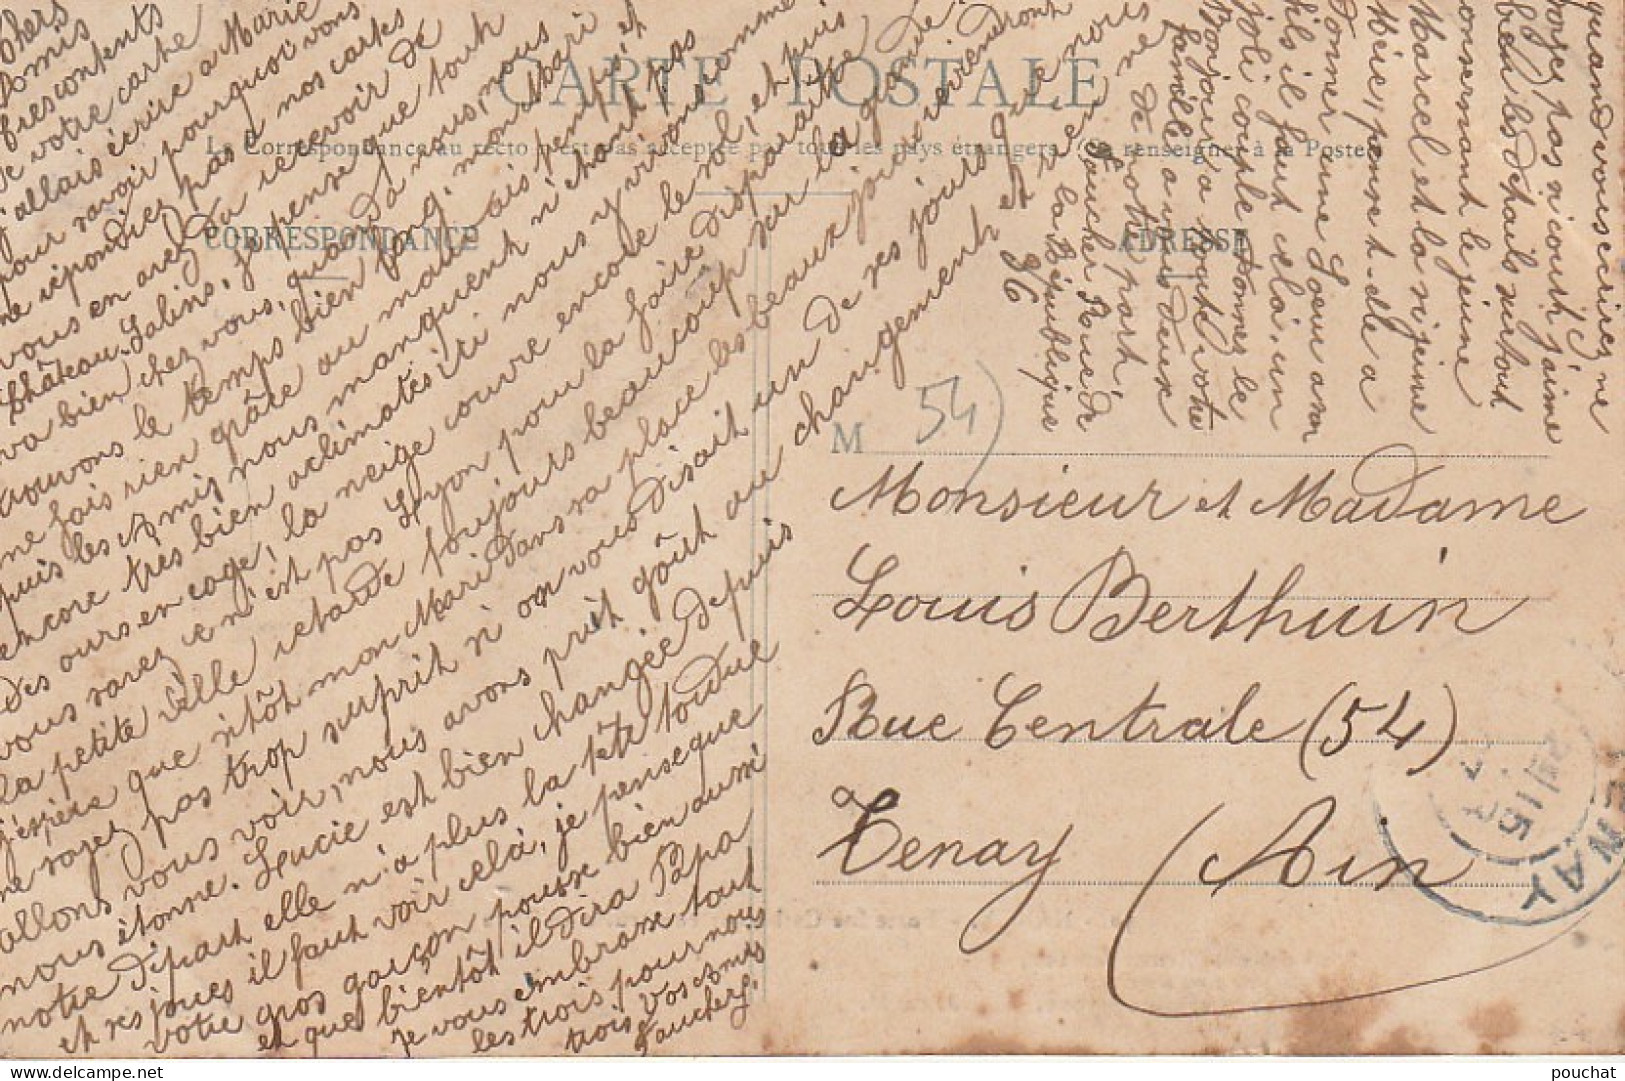 CARTE POSTALE
La Correspondance au recto n'est pas acceptée par tous les pays étrangers Se renseigner à la Poste
CORRESPONDANCE
ADRESSE
Chers
Amis
très contents
de votre carte
j'allais écrire a Marie
pour savoir pourquoi vous
ne répondiez pas a nos cartes
vous en avez du recevoir de
Château-Salins, je pense que tout
va bien chez vous, quand a nous, nous
trouvons le temps bien long, mon Mari et
me fais rien grâce au mauvais temps et
puis les Amis nous manquent n'étant pas
encore très bien aclimatés ici nous y vivons comme
des ours en cage, la neige couvre encore le sol, et puis
vous savez ce n'est pas Lyon pour la faire disparaitre
la petite ville retarde toujours beaucoup sur la grande
j'espère que sitôt mon Mari dans sa place les beaux jours viendront
ne soyez pas trop surprit si on vous disait un de ses jours que nous
allons vous voir, nous avons prit goût au changement et
nous étonne. Lucie est bien changée depuis
notre départ elle n'a plus la tête tordue
et ses joues il faut voir cela, je pense que
votre gros garçon pousse bien aussi
et que bientôt il dira Papa
je vous embrasse tout
les trois pour nous
trois vos Amis
Faucher.
quand vous écrirez ne
soyez pas si court, j'aime
bien les détails surtout
concernant le jeune
Marcel et la si jeune
Mère, pense t-elle a
donner une Soeur a son
fils il faut cela, un
joli couple donnez le
Bonjour a toute votre
famille a vous deux
de notre part
Faucher Rue de
la République
96
M 54)
Monsieur et Madame
Louis Berthuin
Rue Centrale (54)
Tenay (Ain)
TENAY